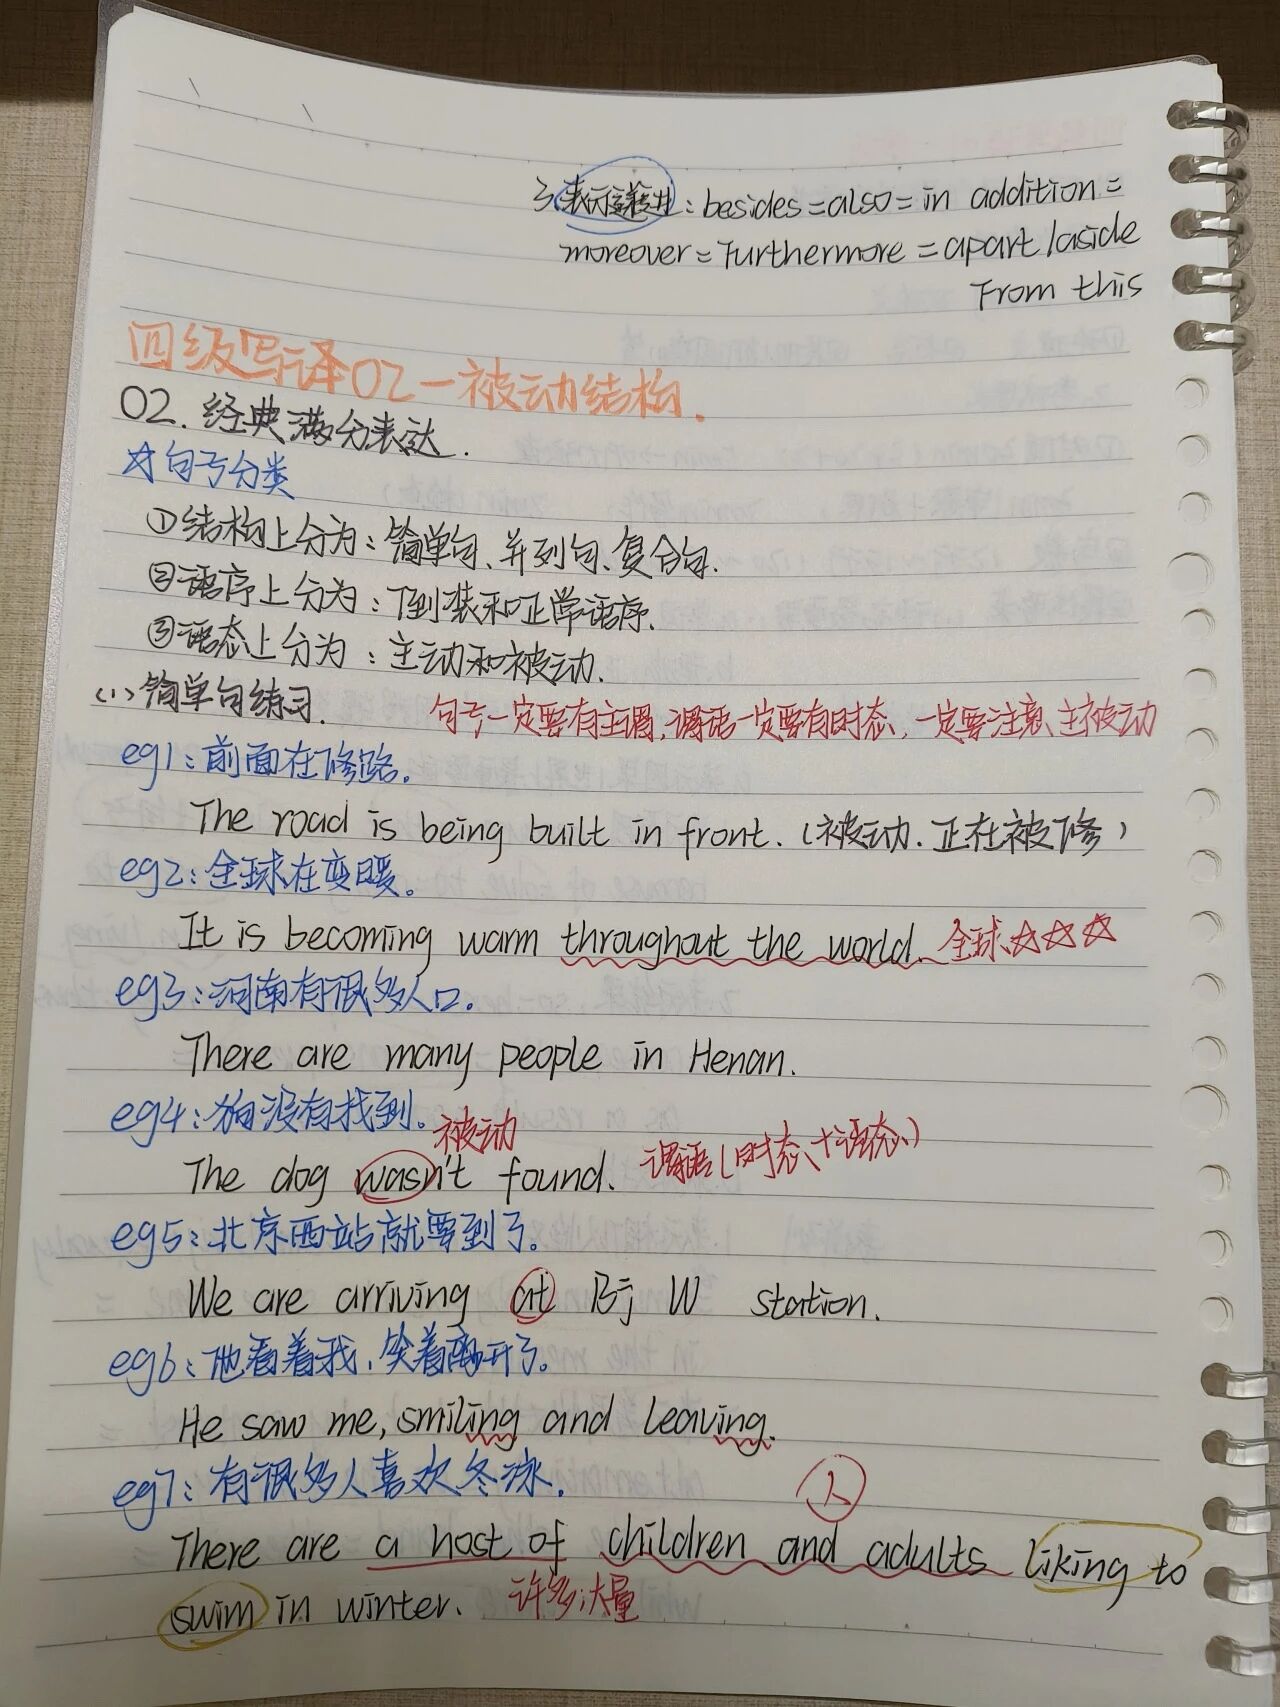 3.表示递进：besides=also=in addition=
moreover=Furthermore=apart/aside
From this
四级写译02—被动结构.
02.经典满分表达.
☆句子分类
①结构上分为：简单句、并列句、复合句.
②语序上分为：倒装和正常语序.
③语态上分为：主动和被动.
(1)简单句练习.
句子一定要有主谓,谓语一定要有时态,一定要注意主被动
eg1：前面在修路.
The road is being built in front.(被动.正在被修)
eg2：全球在变暖.
It is becoming warm throughout the world. 全球☆☆☆
eg3：河南有很多人口.
There are many people in Henan.
eg4：狗没有找到.
被动
The dog wasn't found. 谓语(时态+语态)
eg5：北京西站就要到了.
We are arriving at Bj W station.
eg6：他看着我,笑着离开了.
He saw me, smiling and leaving.
eg7：有很多人喜欢冬泳.
人
There are a host of children and adults liking to
swim in winter. 许多;大量